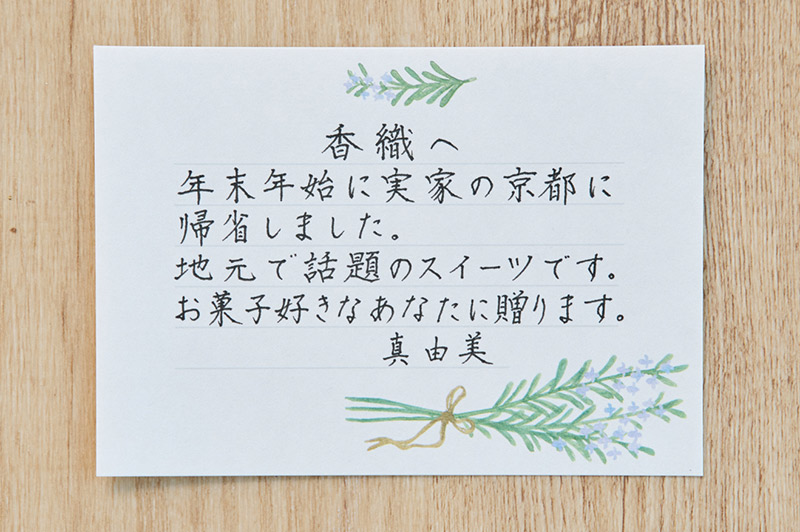 香織へ
年末年始に実家の京都に
帰省しました。
地元で話題のスイーツです。
お菓子好きなあなたに贈ります。
真由美